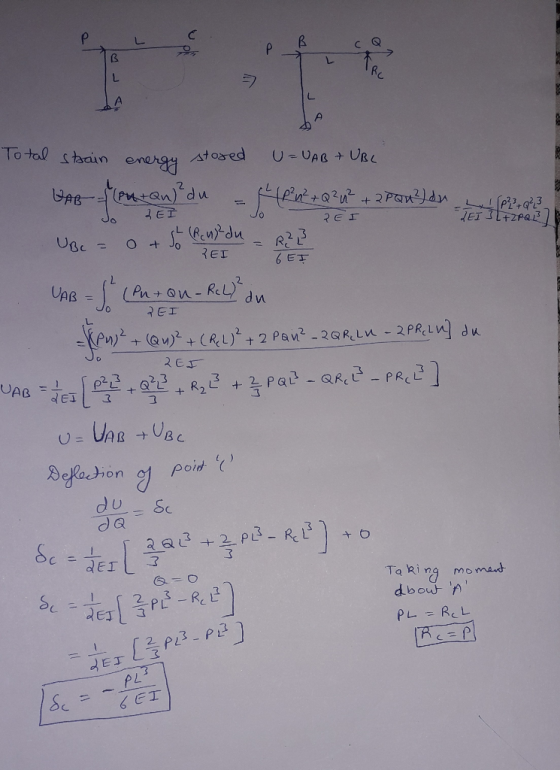 P L C P B C Q
B L
L ⇒ L Rc
A A
Total strain energy stored U = UAB + UBC
UAB = ∫₀ᴸ (Px+Qx)² dx / 2EI = ∫₀ᴸ (P²x² + Q²x² + 2PQx²) dx / 2EI
UBC = 0 + ∫₀ᴸ (Rcx)² dx / 2EI = Rc²L³ / 6EI
UAB = ∫₀ᴸ (Px + Qx - RcL)² dx / 2EI
= ∫₀ᴸ [(Px)² + (Qx)² + (RcL)² + 2PQx² - 2QRcLx - 2PRcLx] dx / 2EI
UAB = 1/2EI [P²L³/3 + Q²L³/3 + R2L³ + 2/3 PQL³ - QRcL³ - PRcL³]
U = UAB + UBC
Deflection of point 'C'
dU/dQ = δc
δc = 1/2EI [2/3 QL³ + 2/3 PL³ - RcL³] + 0
Q = 0
δc = 1/2EI [2/3 PL³ - RcL³]
= 1/2EI [2/3 PL³ - PL³]
δc = - PL³/6EI
Taking moment
about 'A'
PL = RcL
Rc = P